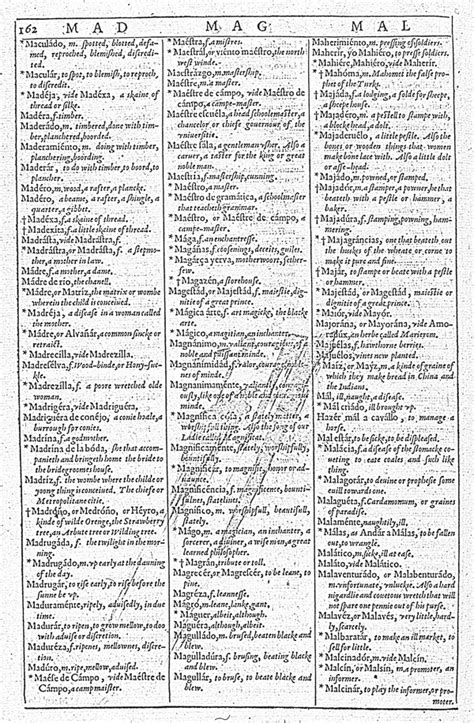 162 MAD MAG MAL
*Maculádo, m. spotted, blotted, defa-
med, reproched, blemished, discredi-
ted.
*Maculár, to spot, to blemish, to reproch,
to discredit.
*Madéja, vide Madéxa, a skaine of
thread or silke.
Madéra, f. timber.
Maderádo, m. timbered, done with tim-
ber, plancked, boorded.
Maderamiénto, m. doing with timber,
planching, boording.
Maderár, to do with timber, to boord, to
plancher.
Madéro, m. wood, a rafter, a plancke.
*Madéro, a beame, a rafter, a shingle, a
quarter, a gibbet.
†Madéxa, f. a skaine of thread.
†Madexíta, f. a little skaine of thread.
*Madrásta, vide Madrástra, f.
*Madrásta, or Madrástra, f. a stepmo-
ther, a mother in law.
Mádre, f. a mother, a dame.
Mádre de río, the channell.
*Mádre, or Matríz, the matrix or wombe
wherein the child is conceiued.
*Madréja, a disease in a woman called
the mother.
*Mádre, or Alvañár, a common sincke or
retraict.
*Madrecílla, vide Madrezílla.
Madresélva, f. Wood-binde, or Hony-suc-
kle.
*Madrezílla, f. a poore wretched olde
woman.
Madrigéra, vide Madriguéra,
Madriguéra de conéjo, a conie hoale, a
burrough for conies.
Madrína, f. a godmother.
*Madrína de la bóda, she that accom-
panieth and bringeth home the bride to
the bridegroomes house.
Madríz, f. the wombe where the childe or
yong thing is conceiued. The chiefe or
Metropolitane citie.
†Madróño, or Medróño, or Héyro, a
kinde of wilde Orenge, the Strawberry
tree, an Arbute tree or Wilding tree.
*Madrugáda, f. the twilight in the mor-
ning.
*Madrugádo, m. vp early at the dauning
of the day.
Madrugár, to rise early, to rise before the
sunne be vp.
Maduraménte, ripely, aduisedly, in due
time.
Madurár, to ripen, to grow mellow, to do
with aduise or discretion.
Maduréza, f. ripenes, mellownes, discre-
tion.
Madúro, m. ripe, mellow, aduised.
*Maése de Cámpo, vide Maéstre de
Cámpo, a campmaister.
Maéstra, f. a mistres.
*Maestrál, or viénto maéstro, the north
west winde.
*Maestrázgo, m. mastership.
Maéstre, m. a master.
*Maéstre de cámpo, vide Maéstro de
cámpo, a campe-master.
*Maéstre escuéla, a head schoolemaster, a
chancelor or chiefe gouernour of the
vniuersitie.
*Maéstre sála, a gentleman vsher. Also a
caruer, a taster for the king or great
noble man.
Maestría, f. mastership, cunning.
*Maéstro, a master.
*Maéstro de gramática, a schoolmaster
that teacheth grammar.
*Maéstro, or Maéstre de cámpo, a
campe-master.
*Mága, f. an enchantresse.
*Magáñas, f. cosenings, deceits, guiles.
*Magárça yerva, motherwoort, fether-
few.
†Magazén, a storehouse.
*Magestád, or Majestád, f. maiestie, dig-
nitie of a great prince.
*Mágica árte, f. art magicke, the blacke
arte.
*Mágico, m. magitian, an enchanter.
Magnánimo, m. valiant, couragious, of a
noble and puissant minde.
Magnanimidád, f. valor, courage, noble-
nes of minde.
Magnanimaménte, valiantly, coura-
giously, like one of an noble and stout
minde.
*Magnífica cósa, a stately matter, a
worship full thing. Also the song of our
Ladie called Magnificat.
Magnificaménte, stately, worshipfully,
bountifully.
*Magnificár, to magnifie, honor or ad-
uance.
Magnificéncia, f. magnificence, bounti-
fulnes, statelines.
Magnífico, m. worshipfull, beautifull,
stately.
*Mágo, m. a magitian, an inchanter, a
sorcerer, a diuiner, a wise men, a great
learned philosopher.
†Magrán, tribute or toll.
Magrecér, or Magrescér, to be leane, to
pine.
Magréza, f. leannesse.
Mágro, m. leane, lanke, gant.
*Maguér, albeit, although.
Maguéra, although, albeit.
Magulládo, m. brused, beaten blacke and
blew.
Magulladúra, f. brusing, beating blacke
and blew.
Magullár, to bruse, to beate blacke and
blew.
Maherimiénto, m. pressing of soldiers.
Maherír, yo Mahiéro, to presse soldiers.
*Mahiére, Mahiéro, vide Maherír.
†*Mahóma, m. Mahomet the false pro-
phet of the Turke.
†Majáda, f. a lodging, a folde for sheepe,
a sheepe house.
†Majadéro, m. a pestell to stampe with,
a blockehead, a dolt.
*Majaderuélo, a little pestle. Also the
bones or wooden things that women
make bone lace with. Also a little dolt
or asse-head.
Majádo, m. powned, or stamped.
†*Majadór, m. a stamper, a powner, he that
beateth with a pestle or hammer, a
baker.
†Majadúra, f. stamping, powning, ham-
mering.
†*Majagráncias, one that beateth out
the huskes of the wheate or corne to
make it pure and fine.
†Majár, to stampe or beate with a pestle
or hammer.
Majestád, or Magestád, maiestie or
dignitie of a great prince.
*Maiór, vide Mayór.
Majorána, or Mayorána, vide Amo-
, an herbe called Marierum.
Majuélas, f. hawthorne berries.
Majuélos, vines new planted.
Maíz, or Mayz, m. a kinde of graine of
which they make bread in China and
the Indians.
Mál, ill, naught, a disease.
*Mál criádo, ill brought vp.
Hazér mál a cavállo, to manage a
horse.
Mal estár, to be sicke, to be displeased.
Malácia, f. a disease of the stomacke co-
ueting to eate coales and such like
thing.
*Malagorár, to deuine or prophesie some
euill towards one.
Malaguéta, f. Cardamomum, or graines
of paradise.
Malaménte, naughtily, ill.
*Málas, as Andár a Málas, to be at debate,
to wrangle.
Malático, m. sickly, ill at ease.
Maláto, vide Malático.
Malaventurádo, or Malabenturádo,
m. vnfortunate, vnluckie. Also a hard
nigardlie and couetous wretch that will
not spare one pennie out of his purse.
Malavéz, or Malavés, very little, hard-
ly, scarsely.
*Malbaratár, to make an ill market, to
sell for little.
*Malcinadór, m. vide Malcín.
*Malcín, or Malsín, m. a promoter, an
informer.
*Malcinár, to play the informer, or pro-
moter.